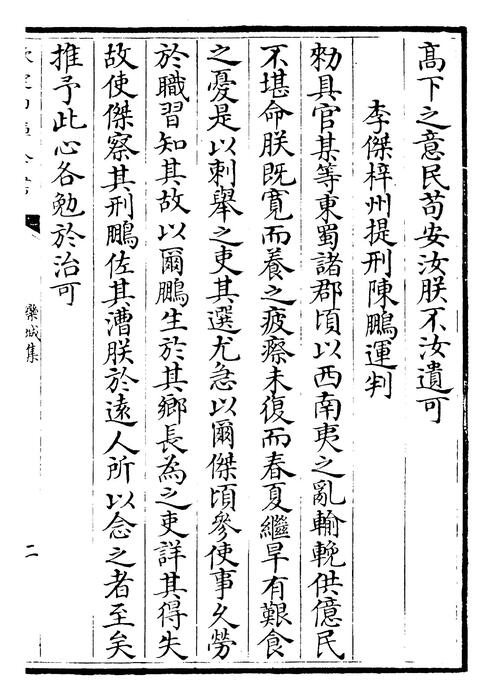 髙下之意民苟安汝朕不汝遺可
李傑梓州提刑陳鵬運判
勑具官某等東蜀諸郡頃以西南夷之亂輸輓供億民
不堪命朕既寛而養之疲瘵未復而春夏繼旱有艱食
之憂是以刺舉之吏其選尤急以爾傑頃參使事久勞
於職習知其故以爾鵬生於其鄉長為之吏詳其得失
故使傑察其刑鵬佐其漕朕於逺人所以念之者至矣
推予此心各勉於治可
欒城集
二